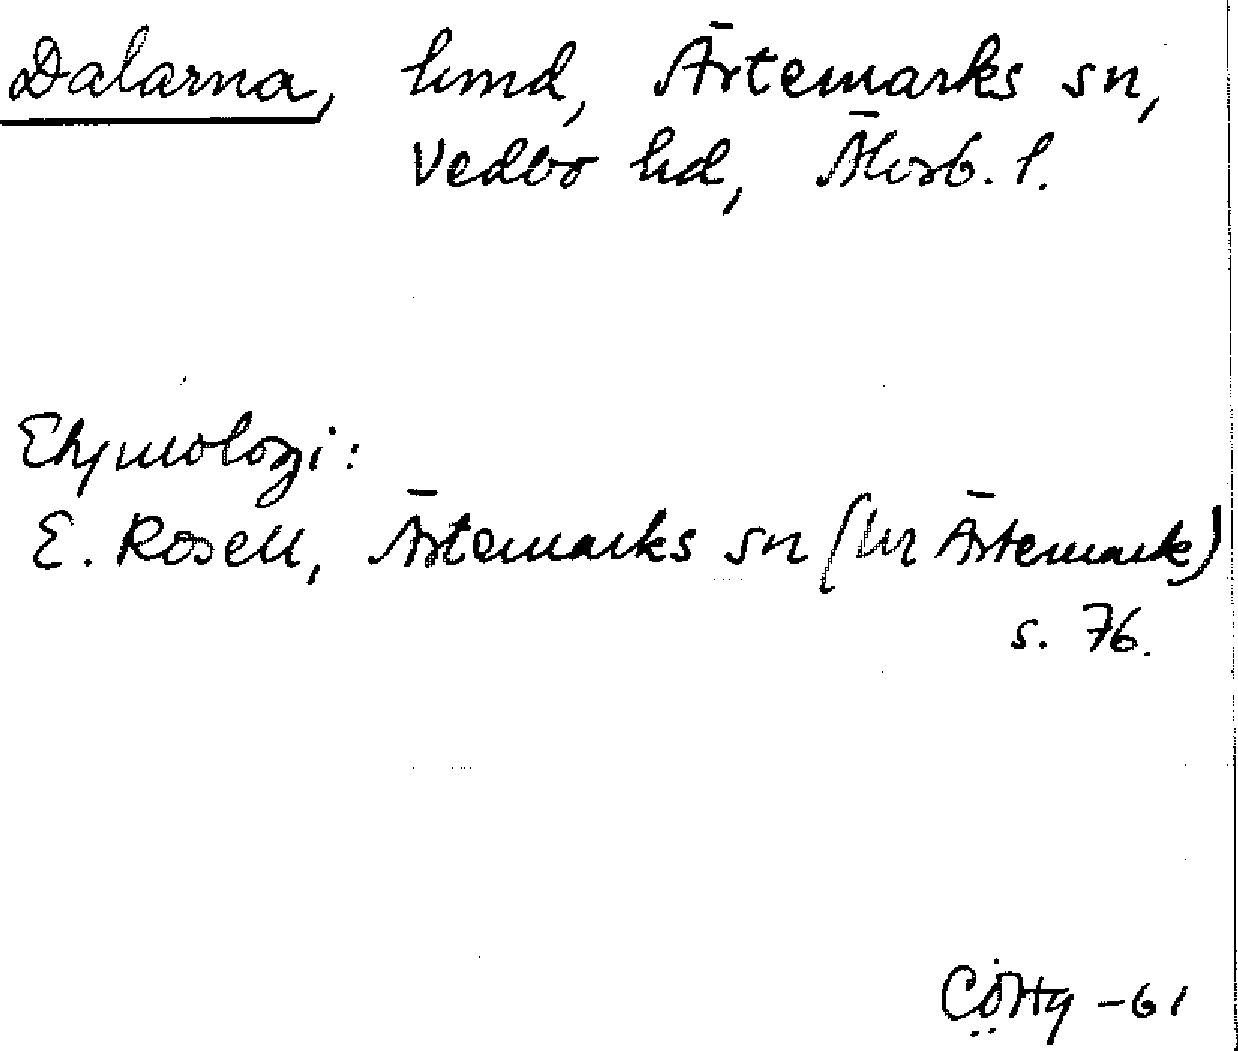 Dalarna, hmd, Ärtemarks sn,
Vedbo hd, Älvsb. l.
Etymologi:
E. Rosell, Ärtemarks sn (ur Ärtemark)
s. 76.
-61